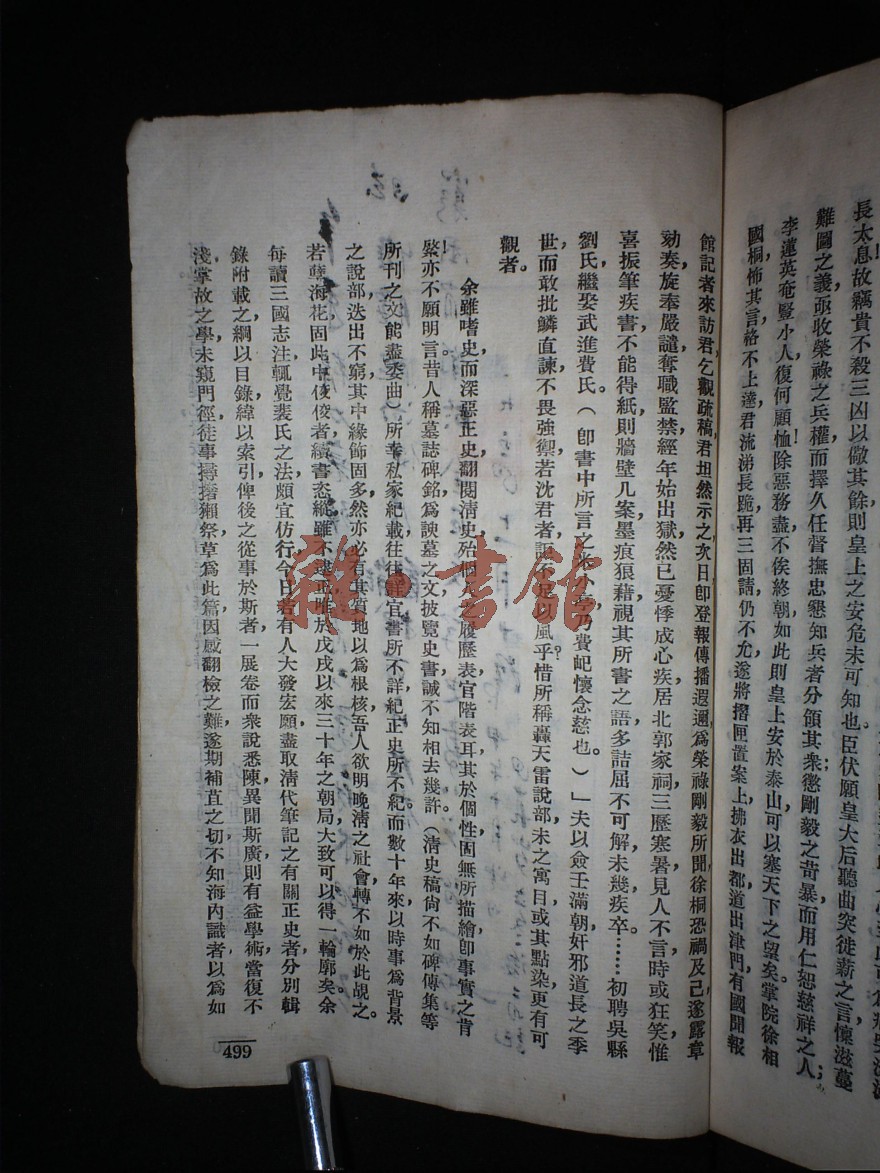 長太息故竊貴不殺三凶以儆其餘則皇上之安危未可知也臣伏願皇大后聽曲突徙薪之言懷滋蔓
難圖之義亟收榮祿之兵權而擇久任督撫忠懇知兵者分領其衆懲剛毅之苛暴而用仁恕慈祥之人
李蓮英奄豎小人復何顧恤除惡務盡不俟終朝如此則皇上安於泰山可以塞天下之望矣掌院徐相
國桐怖其言格不上達君流涕長跪再三固請仍不允遂將摺匣置案上拂衣出都道出津門有國聞報
館記者來訪君乞觀疏稿君坦然示之次日卽登報傳播遐邇爲榮祿剛毅所聞徐桐恐禍及己遂露章
劾奏旋奉嚴譴奪職監禁經年始出獄然已憂悸成心疾居北郭家祠三歷寒暑見人不言時或狂笑惟
喜振筆疾書不能得紙則牆壁几案墨痕狼藉視其所書之語多詰屈不可解未幾疾卒……初聘吳縣
劉氏繼娶武進費氏（卽書中所言之乃費屺懷念慈也。）」夫以僉壬滿朝奸邪道長之季
世而敢批鱗直諫不畏強禦若沈君者詎不足以風乎惜所稱轟天雷說部未之寓目或其點染更有可
觀者。
余雖嗜史而深惡正史翻閱清史殆個人之履歷表官階表耳其於個性固無所描繪卽事實之肯
綮亦不願明言昔人稱墓誌碑銘爲諛墓之文披覽史書誠不知相去幾許（清史稿尙不如碑傳集等
所刊之文能盡委曲）所幸私家紀載往往詳官書所不詳紀正史所不紀而數十年來以時事爲背景
之說部迭出不窮其中緣飾固多然亦必有其質地以爲根核吾人欲明晚清之社會轉不如於此覘之。
若孽海花固此中佼佼者續書恣縱雖不逮正唯於戊戌以來三十年之朝局大致可以得一輪廓矣。余
每讀三國志注輒覺裴氏之法頗宜仿行今日若有人大發宏願盡取清代筆記之有關正史者分別輯
錄附載之綱以目錄緯以索引俾後之從事於斯者一展卷而衆說悉陳異聞斯廣則有益學術當復不
淺掌故之學未窺門徑徒事撏撦獺祭草爲此篇因感翻檢之難遂期補苴之切不知海內識者以爲如
499
雜·書館